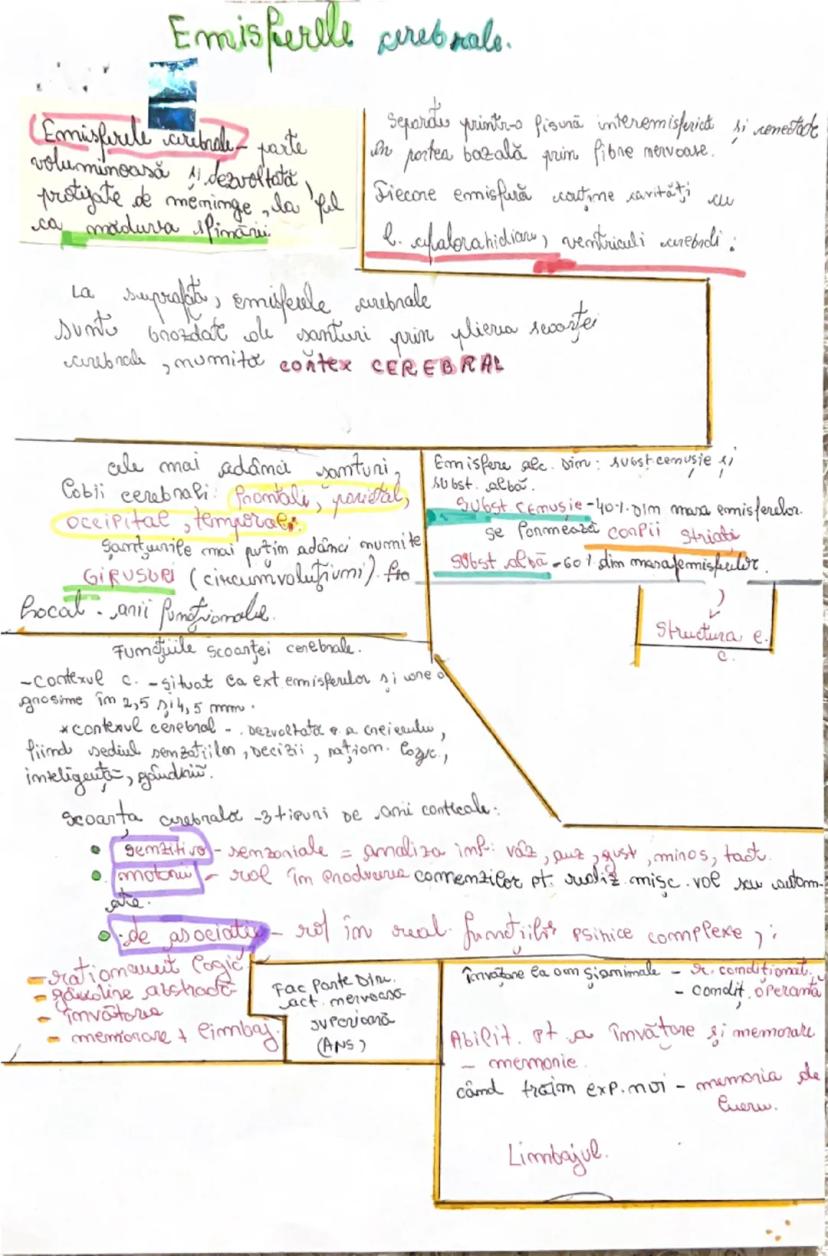 Emisferele cerebrale.
Emisferele cerebrale - parte
voluminoasă și dezvoltată,
protejate de meninge, la fel
ca măduva spinării
Separate printr-o fisură interemisferică și conectate
în partea bazală prin fibre nervoase.
Fiecare emisferă conține cavități cu
l. cefalorahidian, ventriculi cerebrali.
La suprafață, emisferele cerebrale
sunt brăzdate de șanțuri prin plierea scoarței
cerebrale, numită cortex CEREBRAL
cele mai adânci șanțuri,
lobii cerebrali: frontali, parietal,
occipital, temporal.
Șanțurile mai puțin adânci numite
GIRUSURI (circumvoluțiuni).
hocal - arii funcționale.
Emisfere alc. din: subst cenusie și
subst. albă.
Subst cenusie - 40% din masa emisferelor.
se formează corpii striați
Subst albă - 60% din masa emisferelor.
Structura e.
c.
Funcțiile scoarței cerebrale.
- Cortexul c. - situat la ext emisferelor și are o
grosime în 2,5 și 4,5 mm.
* cortexul cerebral - dezvoltată a creierului,
fiind sediul senzațiilor, decizii, rațion. logic,
inteligență, gândirii.
Scoarța cerebrala - 3 tipuri de arii corticale:
• senzitivo - senzoriale = analiza inf: văz, auz, gust, miros, tact.
• motorii - rol în producerea comenzilor pt. realiz. misc. vol sau autom-
ate.
• de asociație - rol în real funcțiilor psihice complexe,:
- raționament logic
- gândirea abstractă
- învățarea
- memorare + limbaj.
Fac parte din
act. nervoasă
superioară
(ANS)
învățare la om și animale - r. condiționat.
- condiț. operantă
Abilit. pt a învățare și memorare
- memorie.
când trăim exp. noi - memoria de
lucru.
Limbajul.